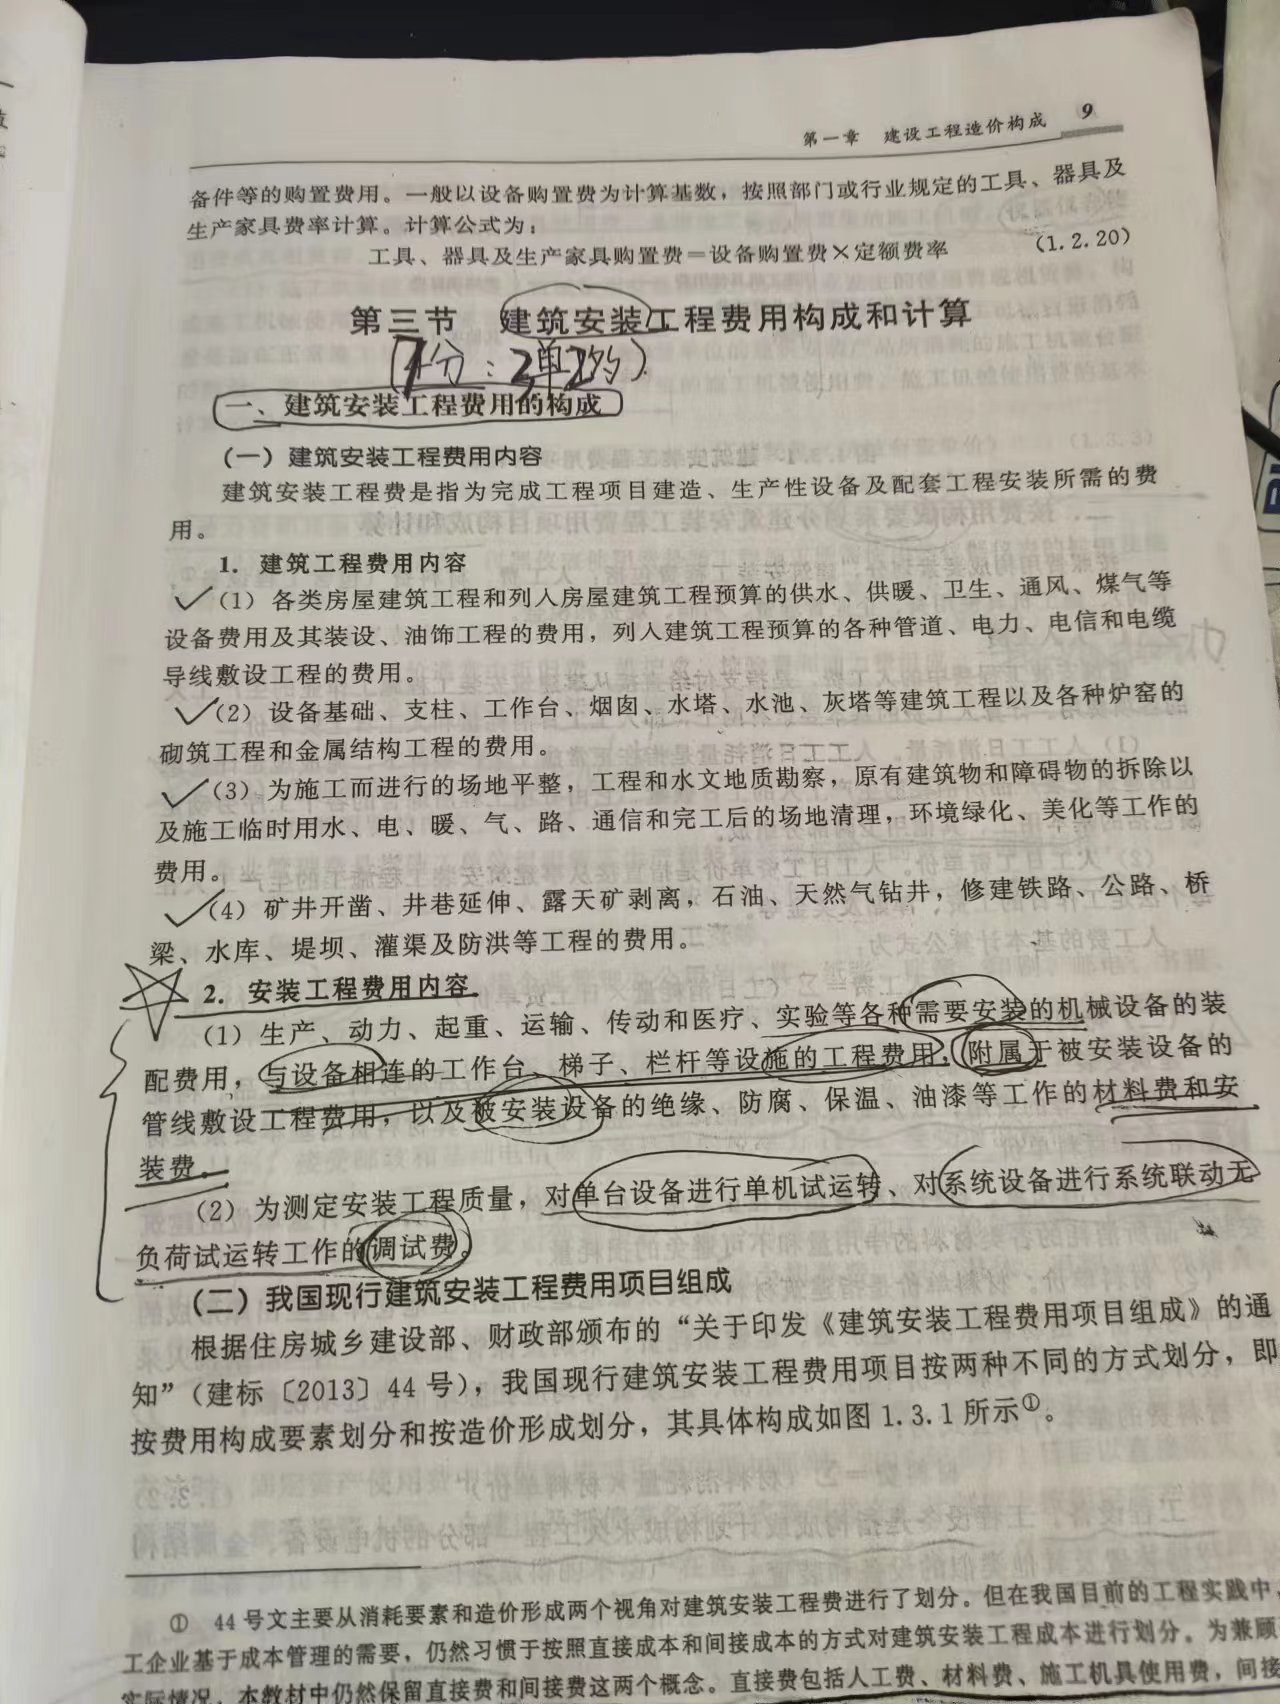 第一章 建设工程造价构成 9
备件等的购置费用。一般以设备购置费为计算基数，按照部门或行业规定的工具、器具及
生产家具费率计算。计算公式为：
工具、器具及生产家具购置费＝设备购置费×定额费率 (1.2.20)
第三节 建筑安装工程费用构成和计算
一、建筑安装工程费用的构成
（一）建筑安装工程费用内容
建筑安装工程费是指为完成工程项目建造、生产性设备及配套工程安装所需的费
用。
1. 建筑工程费用内容
（1）各类房屋建筑工程和列入房屋建筑工程预算的供水、供暖、卫生、通风、煤气等
设备费用及其装设、油饰工程的费用，列入建筑工程预算的各种管道、电力、电信和电缆
导线敷设工程的费用。
（2）设备基础、支柱、工作台、烟囱、水塔、水池、灰塔等建筑工程以及各种炉窑的
砌筑工程和金属结构工程的费用。
（3）为施工而进行的场地平整，工程和水文地质勘察，原有建筑物和障碍物的拆除以
及施工临时用水、电、暖、气、路、通信和完工后的场地清理，环境绿化、美化等工作的
费用。
（4）矿井开凿、井巷延伸、露天矿剥离，石油、天然气钻井，修建铁路、公路、桥
梁、水库、堤坝、灌渠及防洪等工程的费用。
2. 安装工程费用内容
（1）生产、动力、起重、运输、传动和医疗、实验等各种需要安装的机械设备的装
配费用，与设备相连的工作台、梯子、栏杆等设施的工程费用，附属于被安装设备的
管线敷设工程费用，以及被安装设备的绝缘、防腐、保温、油漆等工作的材料费和安
装费。
（2）为测定安装工程质量，对单台设备进行单机试运转、对系统设备进行系统联动无
负荷试运转工作的调试费。
（二）我国现行建筑安装工程费用项目组成
根据住房城乡建设部、财政部颁布的“关于印发《建筑安装工程费用项目组成》的通
知”（建标〔2013〕44号），我国现行建筑安装工程费用项目按两种不同的方式划分，即
按费用构成要素划分和按造价形成划分，其具体构成如图1.3.1所示①。
① 44号文主要从消耗要素和造价形成两个视角对建筑安装工程费进行了划分。但在我国目前的工程实践中，
工企业基于成本管理的需要，仍然习惯于按照直接成本和间接成本的方式对建筑安装工程成本进行划分。为兼顾
实际情况，本教材中仍然保留直接费和间接费这两个概念。直接费包括人工费、材料费、施工机具使用费，间接